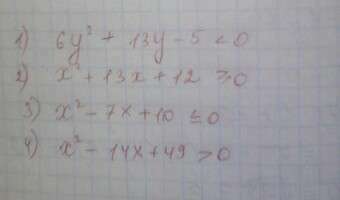 1) 6y² + 13y - 5 < 0
2) x² + 13x + 12 ≥ 0
3) x² - 7x + 10 ≤ 0
4) x² - 14x + 49 > 0